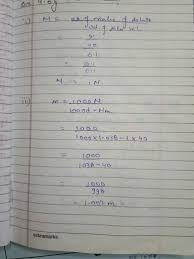 i) M = no. of moles of solute
vol. of sol. in L
= 
40
= 0.1
0.1
M = 1M
ii) m = 1000 M
1000d - Mm
= 1000
1000 × 1.038 - 1 × 40
= 1000
1038 - 40
= 1000
998
= 1.002 m
extramarks